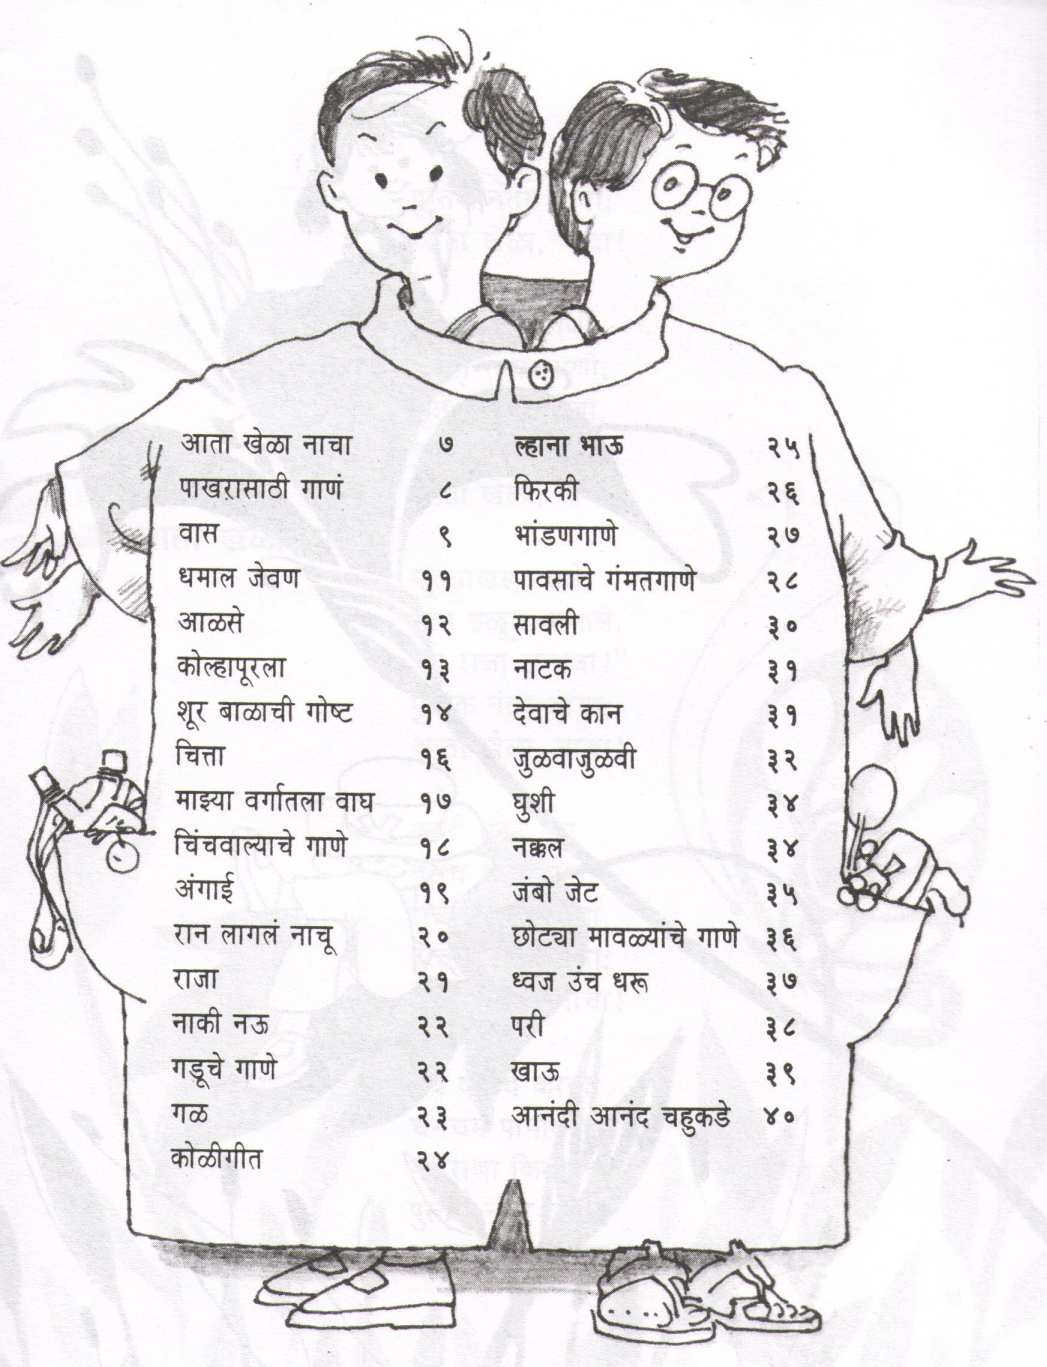 आता खेळा नाचा ७
पाखरासाठी गाणं ८
वास ९
धमाल जेवण ११
आळसे १२
कोल्हापूरला १३
शूर बाळाची गोष्ट १४
चित्ता १६
माझ्या वर्गातला वाघ १७
चिंचवाल्याचे गाणे १८
अंगाई १९
रान लागलं नाचू २०
राजा २१
नाकी नऊ २२
गडूचे गाणे २२
गळ २३
कोळीगीत २४
ल्हाना भाऊ २५
फिरकी २६
भांडणगाणे २७
पावसाचे गंमतगाणे २८
सावली ३०
नाटक ३१
देवाचे कान ३१
जुळवाजुळवी ३२
घुशी ३४
नक्कल ३४
जंबो जेट ३५
छोट्या मावळ्यांचे गाणे ३६
ध्वज उंच धरू ३७
परी ३८
खाऊ ३९
आनंदी आनंद चहुकडे ४०